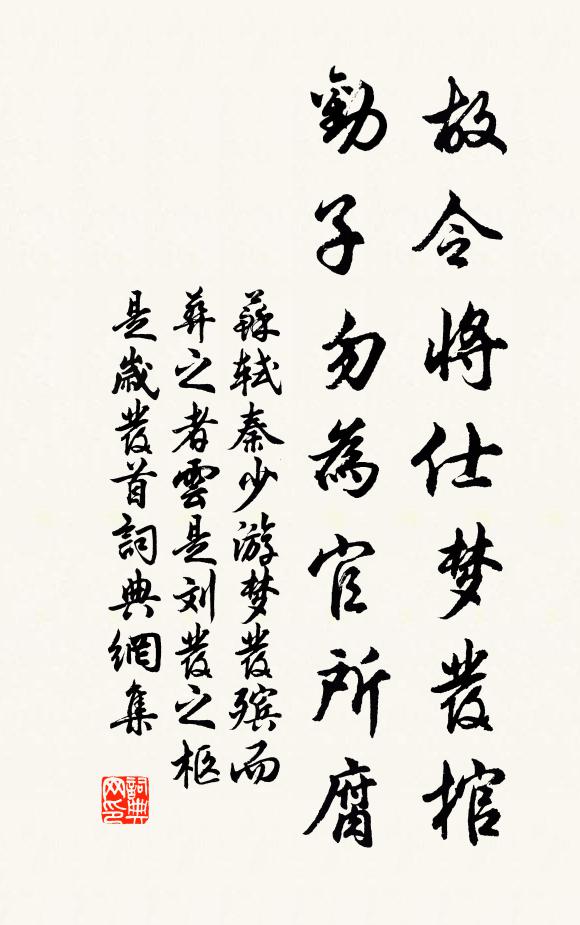 故令将仕梦發棺
勸子勿為官所腐
蘇轼秦少游梦發殡而
葬之者雲是刘發之柩
是歲發首詞典網集
詞典
网印